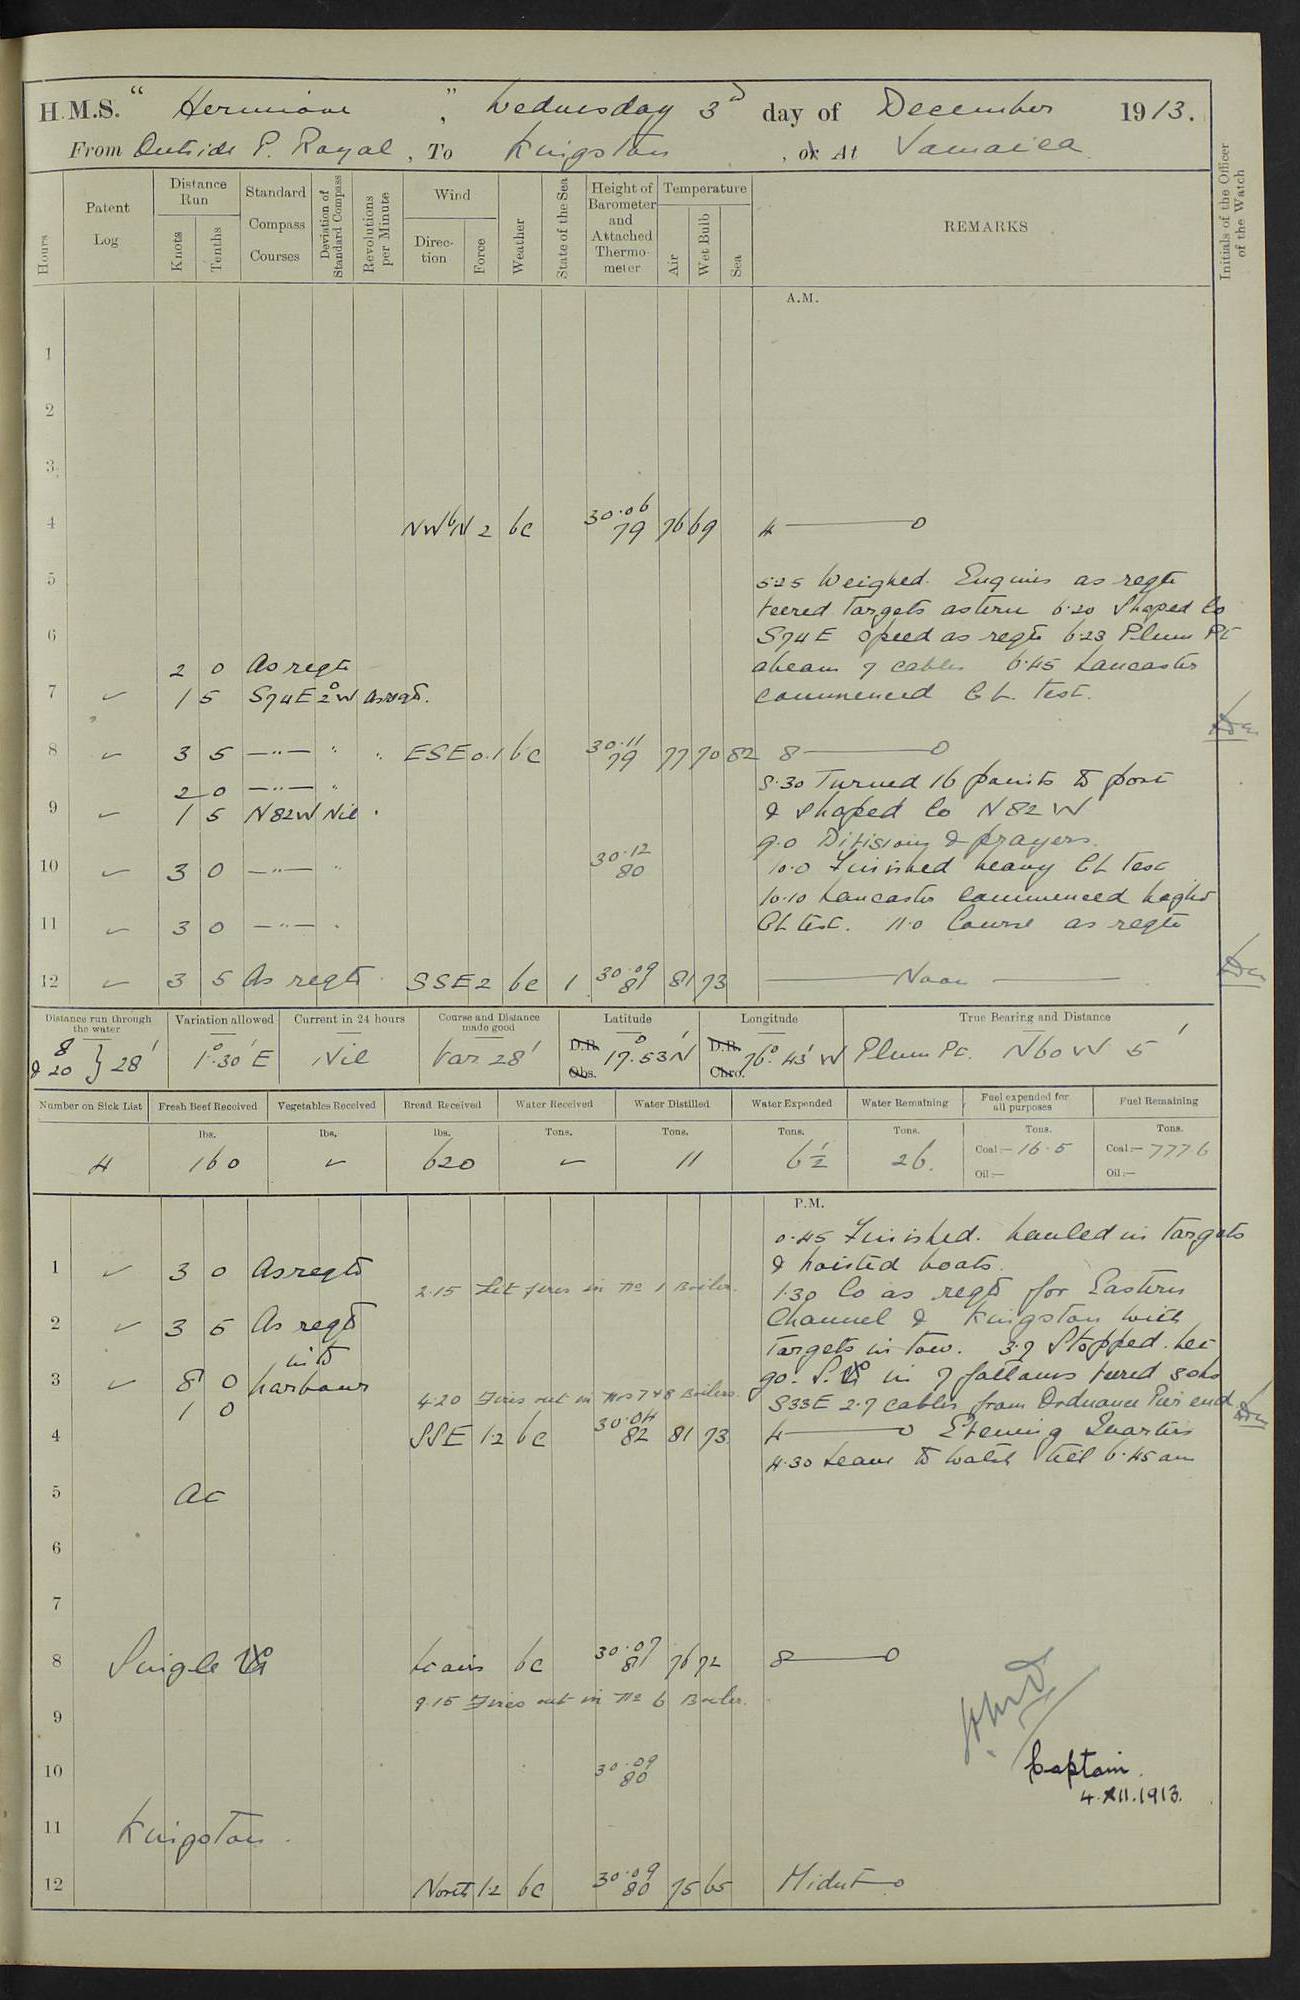 H.M.S. " Hermione ", Wednesday 3d day of December 1913.
From Outside P. Royal, To Kingston, or At Jamaica
Hours
Patent Log
Distance Run
Knots
Tenths
Standard Compass Courses
Deviation of Standard Compass
Revolutions per Minute
Wind
Direction
Force
Weather
State of the Sea
Height of Barometer and Attached Thermometer
Temperature
Air
Wet Bulb
Sea
REMARKS
Initials of the Officer of the Watch
A.M.
1
2
3
4 NWbN 2 bc 30.06 79 76 69 4 ——— 0
5 5.25 Weighed. Engines as reqte
veered targets astern 6.20 Shaped Co
6 S74E speed as reqte 6.23 Plum Pt
2 0 As reqte abeam 7 cables 6.45 Lancaster
7 ✓ 1 5 S74E 2°W as reqd. commenced CL. Test.
8 ✓ 3 5 —"— " " ESE 0.1 bc 30.11 79 77 70 82 8 ——— 0
2 0 —"— " 8.30 Turned 16 points to port
9 ✓ 1 5 N82W Nil " & shaped Co N82W
9.0 Divisions & prayers.
10 ✓ 3 0 —"— " 30.12 80 10.0 Finished heavy CL Test
10.10 Lancaster commenced light
11 ✓ 3 0 —"— " CL test. 11.0 Course as reqte
12 ✓ 3 5 As reqte SSE 2 bc 1 30.09 81 81 73 ——— Noon ———
Distance run through the water
Variation allowed
Current in 24 hours
Course and Distance made good
Latitude
Longitude
True Bearing and Distance
8 & 20 } 28' 1°.30' E Nil Var 28' D.R. Obs. 17°.53' N D.R. Chro. 76°.43' W Plum Pt. N60W 5'
Number on Sick List
Fresh Beef Received
Vegetables Received
Bread Received
Water Received
Water Distilled
Water Expended
Water Remaining
Fuel expended for all purposes
Fuel Remaining
lbs. lbs. lbs. Tons. Tons. Tons. Tons. Tons. Tons.
4 160 ✓ 620 ✓ 11 6½ 26. Coal:— 16.5 Coal:— 777.6
Oil:— Oil:—
P.M.
0.45 Finished. hauled in targets
1 ✓ 3 0 As reqte & hoisted boats.
2.15 Let fires in No 1 Boiler. 1.30 Co as reqd for Eastern
2 ✓ 3 5 As reqd Channel & Kingston with
into targets in tow. 3.7 Stopped. let
3 ✓ 8 0 harbour go. S.Br in 7 fathoms veered 3 shs
1 0 4.20 Fires out in Nos 7 & 8 Boilers. S33E 2.7 cables from Ordnance Pier end
4 SSE 1.2 bc 30.04 82 81 73 4 ——— 0 Evening Quarters
4.30 Leave to watch till 6.45 am
5 At
6
7
8 Single Br Lt airs bc 30.07 81 76 72 8 ——— 0
9.15 Fires out in No 6 Boiler.
9
10 30.09 80
Captain.
4.XII.1913.
11 Kingston.
12 North 1.2 bc 30.09 80 75 65 Midnt — 0